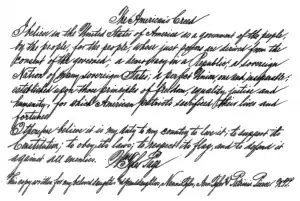 The American's Creed
I believe in the United States of America as a government of the people,
by the people, for the people, whose just powers are derived from the
consent of the governed; a democracy in a Republic; a sovereign
Nation of many sovereign States; a perfect Union, one and inseparable;
established upon those principles of freedom, equality, justice and
humanity, for which American patriots sacrificed their lives and
fortunes.
I therefore believe it is my duty to my country to love it; to support its
Constitution; to obey its laws; to respect its flag and to defend it
against all enemies.
This copy written for my beloved